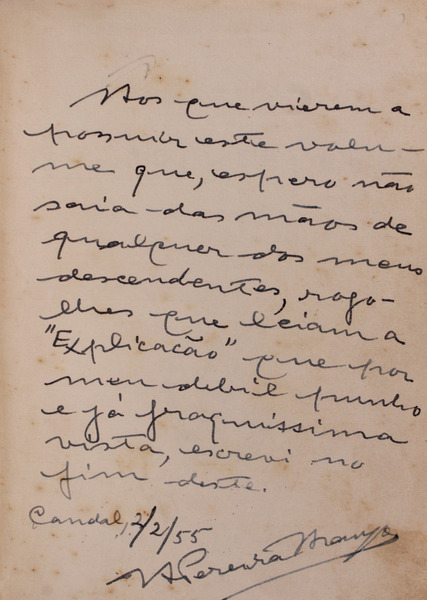 Aos que vierem a
possuir este volu-
me que, espero não
saia das mãos de
qualquer dos meus
descendentes, rogo-
lhes que leiam a
"Explicacão" que por
meu debil punho
e já fraquissima
vista, escrevi no
fim deste.
Candal, 2/2/55
Pereira Araujo